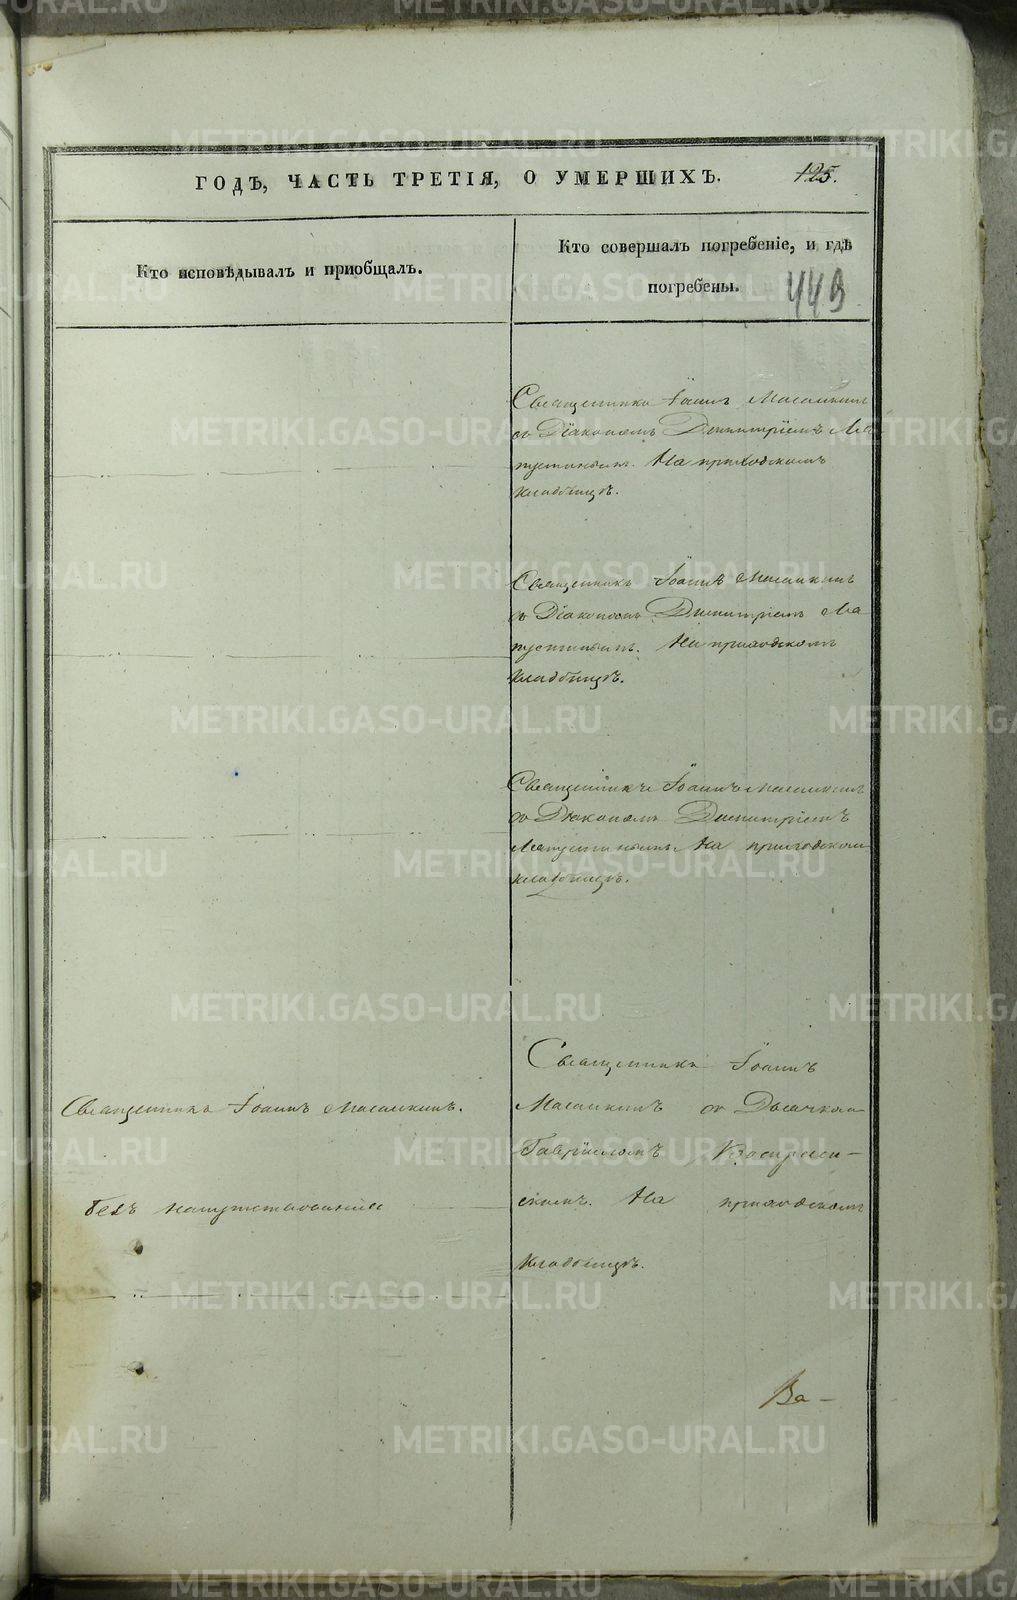 ГОДЪ, ЧАСТЬ ТРЕТІЯ, О УМЕРШИХЪ. 125.
Кто исповѣдывалъ и приобщалъ.
Кто совершалъ погребеніе, и гдѣ
погребены.
449
Священникъ Іоаннъ
съ Діакономъ Димитріемъ
На приходскомъ
кладбищѣ.
Священникъ Іоаннъ
съ Діакономъ Димитріемъ
На приходскомъ
кладбищѣ.
Священникъ Іоаннъ
съ Діакономъ Димитріемъ
На приходскомъ
кладбищѣ.
Священникъ Іоаннъ
Священникъ Іоаннъ
съ Дьячкомъ
Гавріиломъ
На приходскомъ
безъ напутствованія
кладбищѣ.
Ва-
METRIKI.GASO-URAL.RU